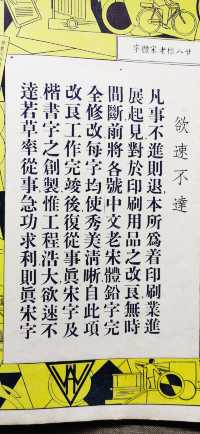 欲速不達
凡事不進則退本所爲着印刷業進
展起見對於印刷用品之改良無時
間斷前將各號中文老宋體鉛字完
全修改每字均使秀美清晰自此項
改良工作完竣後復從事眞宋字及
楷書字之創製惟工程浩大欲速不
達若草率從事急功求利則眞宋字